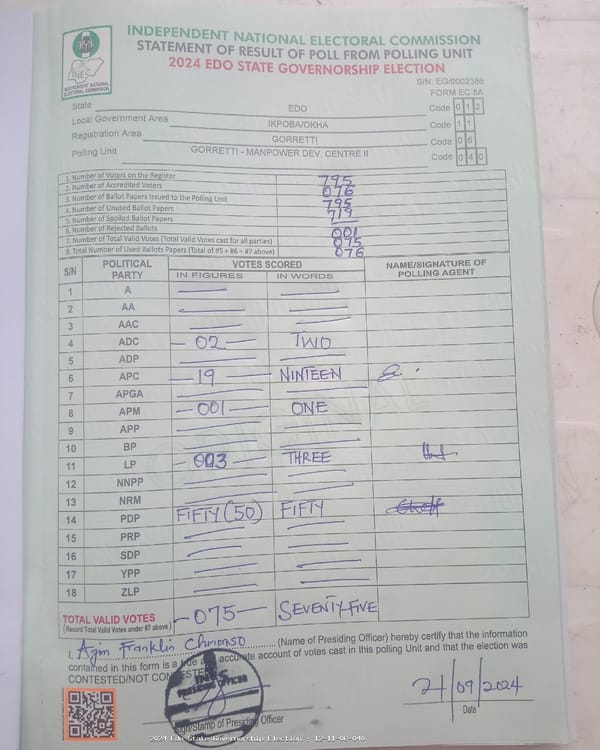 INDEPENDENT NATIONAL ELECTORAL COMMISSION
STATEMENT OF RESULT OF POLL FROM POLLING UNIT
2024 EDO STATE GOVERNORSHIP ELECTION
INEC
INDEPENDENT NATIONAL ELECTORAL COMMISSION
S/N: EG/0002386
FORM EC 8A
State EDO Code 012
Local Government Area IKPOBA/OKHA Code 11
Registration Area GORRETTI Code 06
Polling Unit GORRETTI - MANPOWER DEV. CENTRE II Code 040
1. Number of Voters on the Register 795
2. Number of Accredited Voters 076
3. Number of Ballot Papers Issued to the Polling Unit 795
4. Number of Unused Ballot Papers 719
5. Number of Spoiled Ballot Papers
6. Number of Rejected Ballots 001
7. Number of Total Valid Votes (Total Valid Votes cast for all parties) 075
8. Total Number of Used Ballots Papers (Total of #5 + #6 + #7 above) 076
S/N POLITICAL PARTY VOTES SCORED NAME/SIGNATURE OF POLLING AGENT
IN FIGURES IN WORDS
1 A
2 AA
3 AAC
4 ADC - 02 - TWO
5 ADP
6 APC - 19 - NINTEEN
7 APGA
8 APM - 001 - ONE
9 APP
10 BP
11 LP - 003 - THREE
12 NNPP
13 NRM
14 PDP FIFTY (50) FIFTY
15 PRP
16 SDP
17 YPP
18 ZLP
TOTAL VALID VOTES - 075 - SEVENTY-FIVE
(Record Total Valid Votes under #7 above)
I, Franklin (Name of Presiding Officer) hereby certify that the information
contained in this form is a true and accurate account of votes cast in this polling Unit and that the election was
CONTESTED/NOT CONTESTED
INEC
PRESIDING OFFICER
21/09/2024
Sign/Stamp of Presiding Officer
Date
2024 Edo State Governorship Election : 12-11-06-040